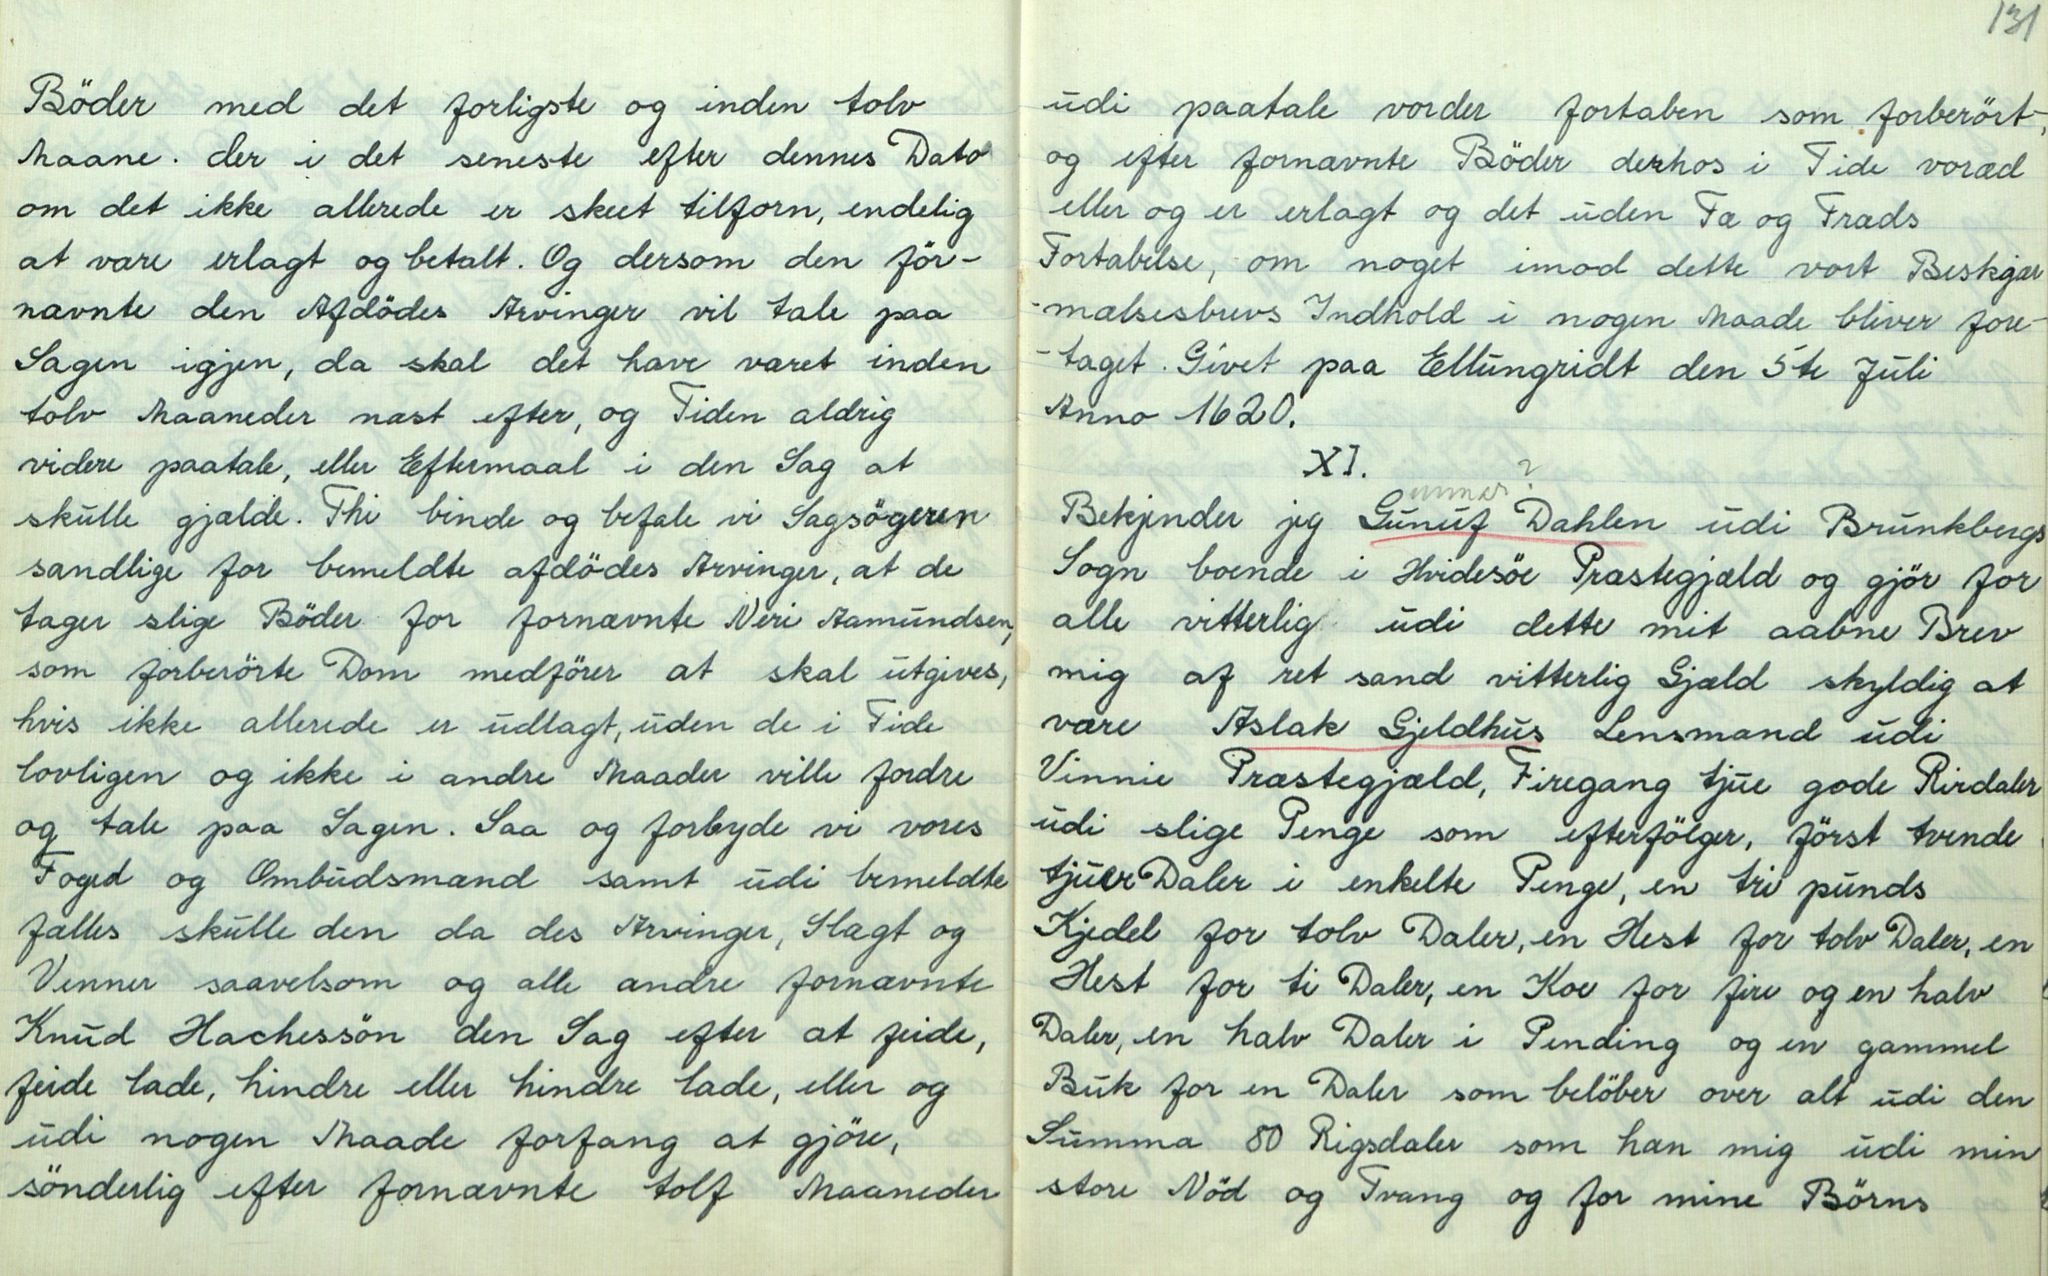 Böder med det forligste og inden tolv
Maane. der i det seneste efter dennes Dato
om det ikke allerede er skeet tilforn, endelig
at være erlagt og betalt. Og dersom den för-
nævnte den Afdödes Arvinger vil tale paa
Sagen igjen, da skal det have været inden
tolv Maaneder næst efter, og Tiden aldrig
videre paatale, eller Eftermaal i den Sag at
skulle gjælde. Thi binde og befale vi Sagsögeren
sandlige for bemeldte afdödes Arvinger, at de
tager slige Böder for fornævnte Neri Aamundsen,
som forberörte Dom medförer at skal utgives,
hvis ikke allerede er udlagt, uden de i Tide
lovligen og ikke i andre Maader ville fordre
og tale paa Sagen. Saa og forbyde vi vores
Foged og Ombudsmænd samt udi bemeldte
fælles skulle den da des Arvinger, Slægt og
Venner saavelsom og alle andre fornævnte
Knud Hachessön den Sag efter at feide,
feide lade, hindre eller hindre lade, eller og
udi nogen Maade forfang at gjöre,
sönderlig efter fornævnte tolf Maaneder
131
udi paatale vorder fortaben som forberört,
og efter fornævnte Böder derhos i Tide voræd
eller og er erlagt og det uden Fæ og Fræds
Fortabelse, om noget imod dette vort Beskjær
-mælsesbrevs Indhold i nogen Maade bliver fore-
-taget. Givet paa Ellungridt den 5te Juli
Anno 1620.
XI.
unnar?
Bekjender jeg Gunuf Dahlen udi Brunkbergs
Sogn boende i Hvidesöe Præstegjæld og gjör for
alle vitterlig udi dette mit aabne Brev
mig af ret sand vitterlig Gjæld skyldig at
være Aslak Gjeldhus Lensmand udi
Vinnie Præstegjæld, Firegang tjue gode Rixdaler
udi slige Penge som efterfölger, först tvende
tjuer Daler i enkelte Penge, en tri punds
Kjedel for tolv Daler, en Hest for tolv Daler, en
Hest for ti Daler, en Koe for fire og en halv
Daler, en halv Daler i Pending og en gammel
Buk for en Daler som belöber over alt udi den
Summa 80 Rigsdaler som han mig udi min
store Nöd og Tvang og for mine Börns